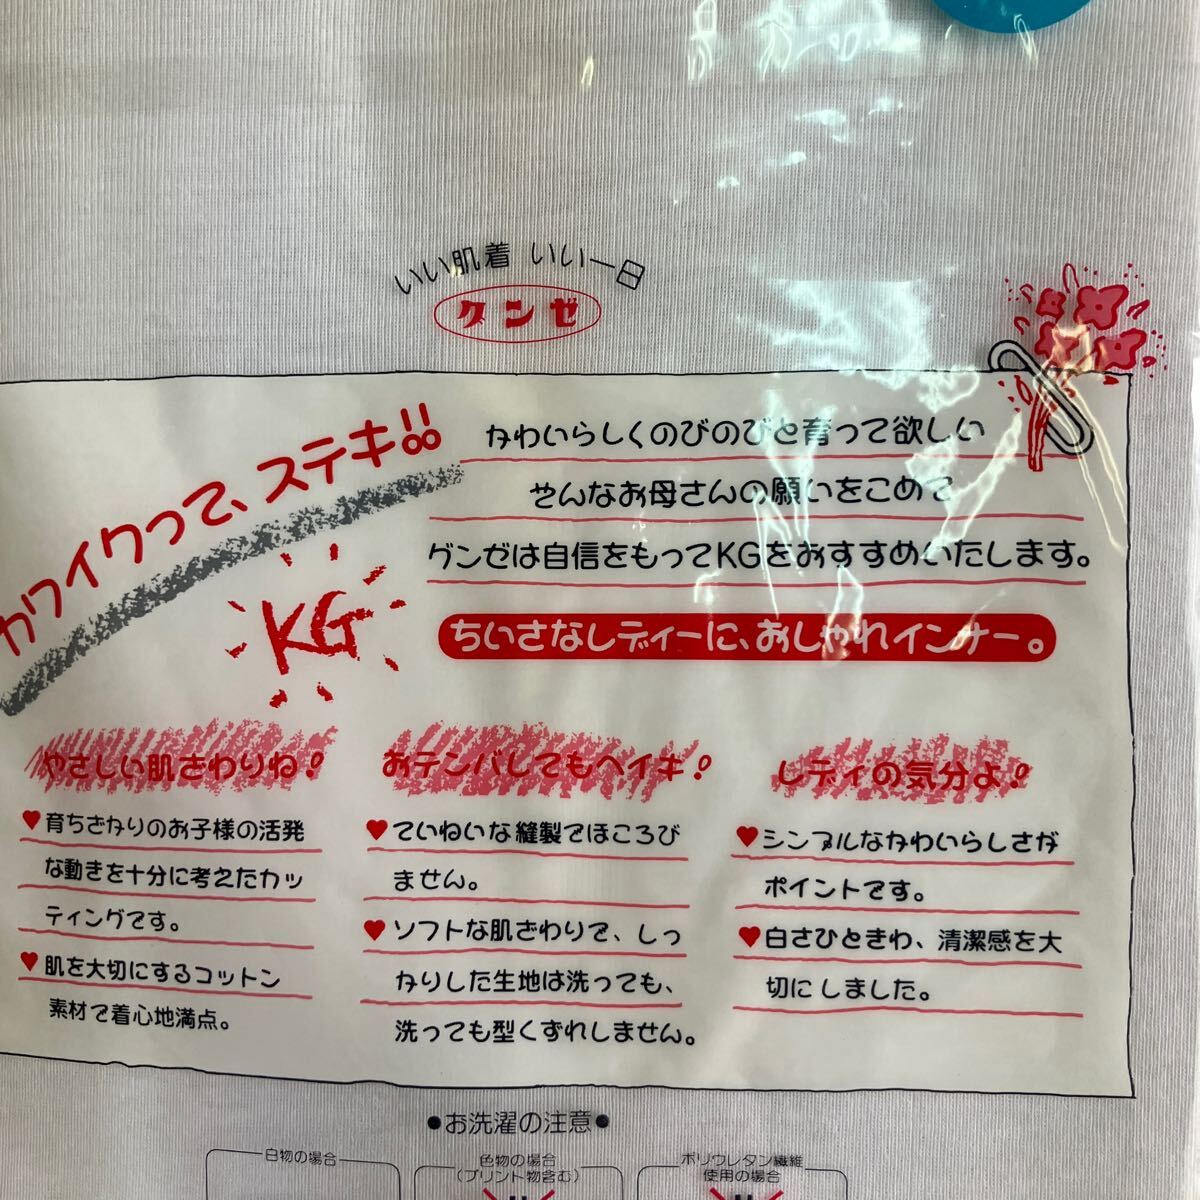 いい肌着 いい一日
グンゼ
カワイクって、ステキ!!
KG
かわいらしくのびのびと育って欲しい
そんなお母さんの願いをこめて
グンゼは自信をもってKGをおすすめいたします。
ちいさなレディーに、おしゃれインナー。
やさしい肌ざわりね!
♥育ちざかりのお子様の活発
な動きを十分に考えたカッ
ティングです。
♥肌を大切にするコットン
素材で着心地満点。
おテンバしてもヘイキ!
♥ていねいな縫製でほころび
ません。
♥ソフトな肌ざわりで、しっ
かりした生地は洗っても、
洗っても型くずれしません。
レディの気分よ!
♥シンプルなかわいらしさが
ポイントです。
♥白さひときわ、清潔感を大
切にしました。
●お洗濯の注意●
白物の場合
色物の場合
(プリント物含む)
ポリウレタン繊維
使用の場合